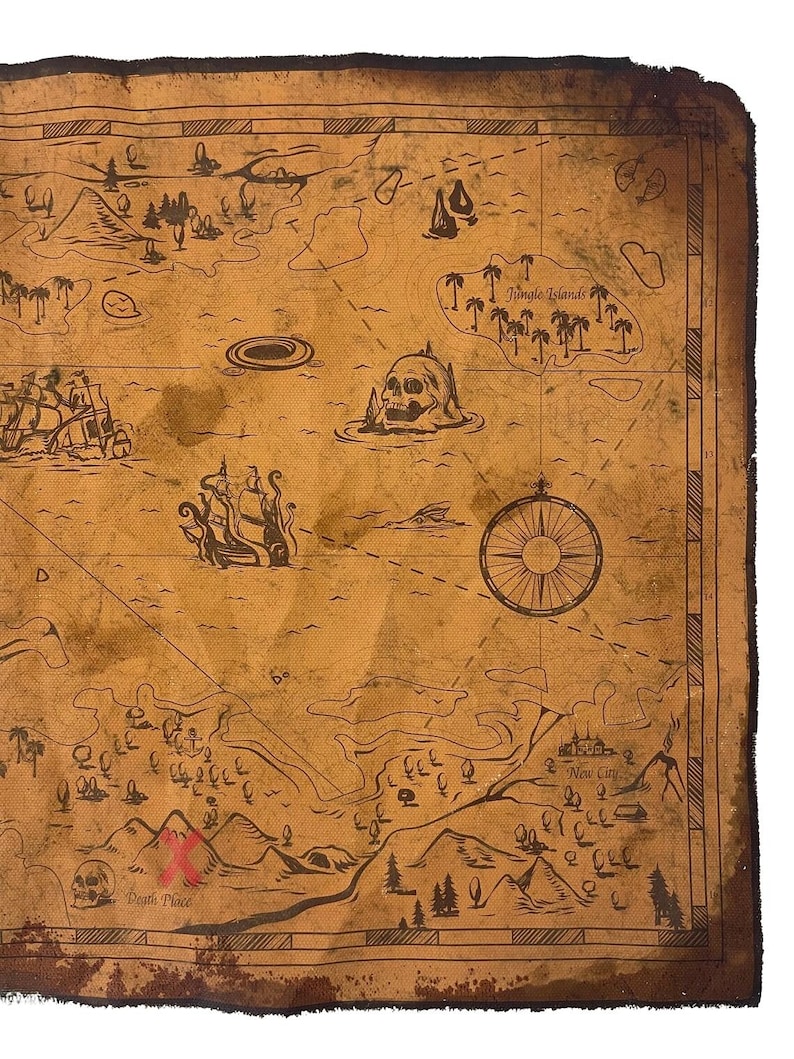 Jungle Islands
13
14
New City
15
Death Place